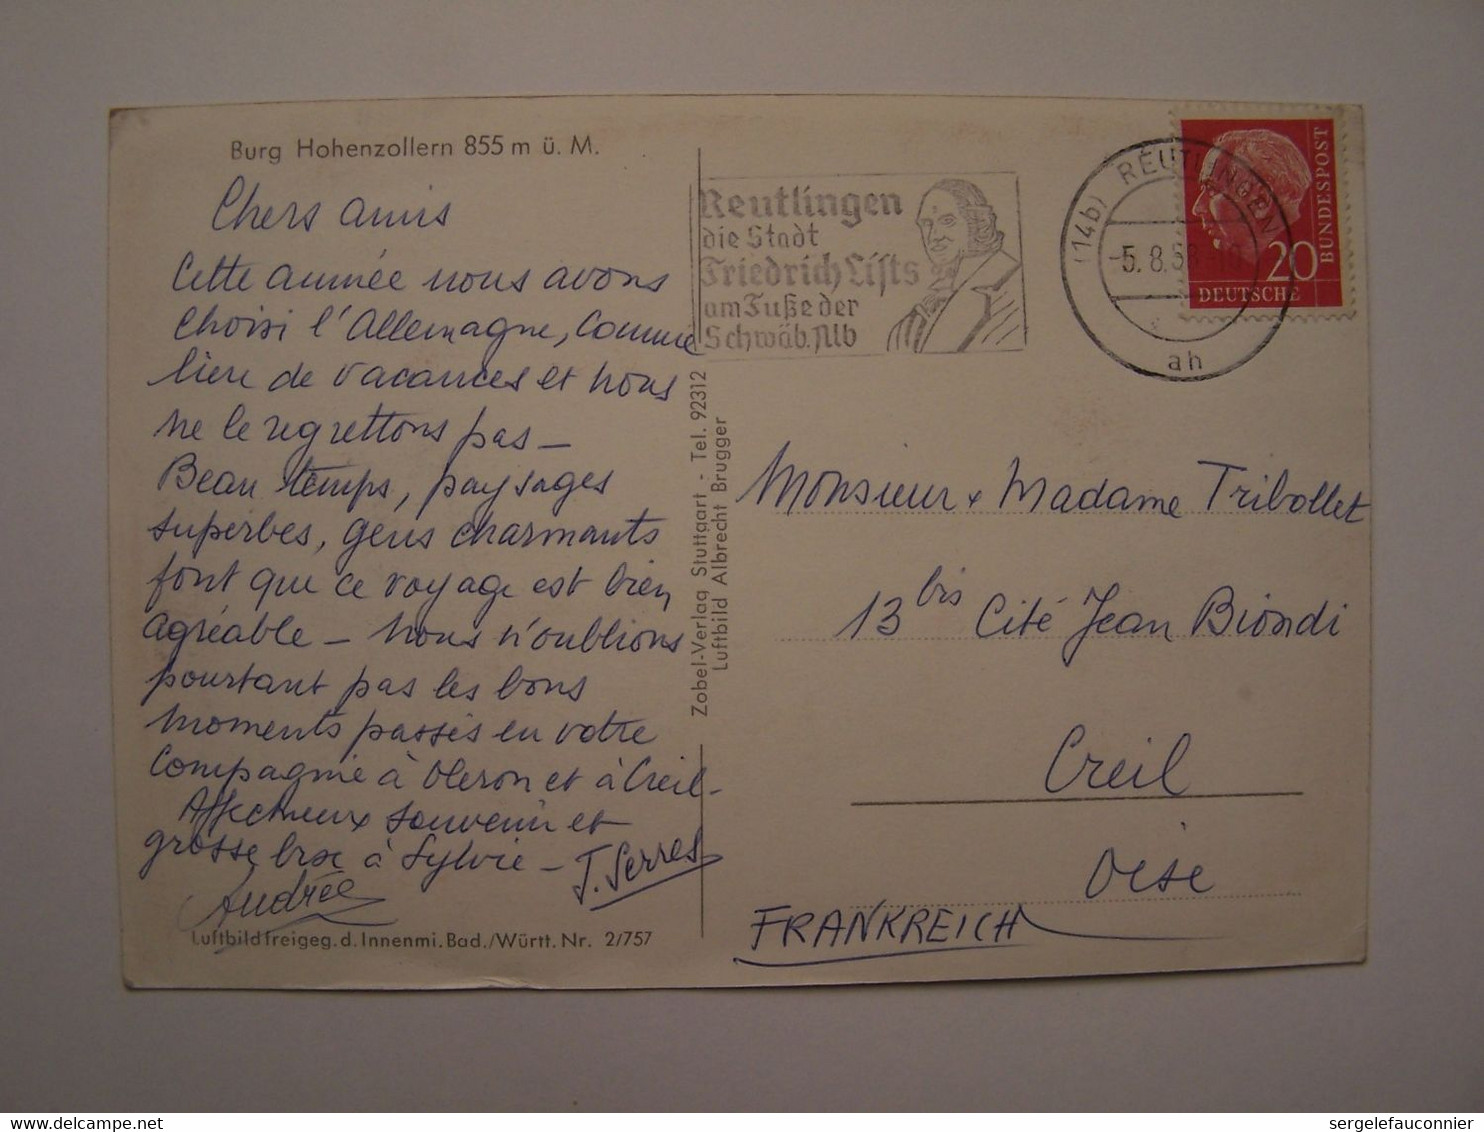 Burg Hohenzollern 855 m ü. M.
Chers amis
Cette année nous avons
choisi l'Allemagne, comme
lieu de vacances et nous
ne le regrettons pas —
Beau temps, paysages
superbes, gens charmants
font que ce voyage est bien
agréable — Nous n'oublions
pourtant pas les bons
moments passés en votre
compagnie à Oleron et à Creil —
Affectueux souvenir et
grosse bise à Sylvie —
J. Serres
Andrée
Luftbild freigeg. d. Innenmi. Bad./Württ. Nr. 2/757
Zobel-Verlag Stuttgart - Tel. 92312
Luftbild Albrecht Brugger
Reutlingen
die Stadt
Friedrich Lists
am Fuße der
Schwäb. Alb
(14b) REUTLINGEN
-5. 8. 58-10
ah
20
DEUTSCHE
BUNDESPOST
Monsieur + Madame Tribollet
13 bis Cité Jean Biondi
Creil
Oise
FRANKREICH
sergelefauconnier